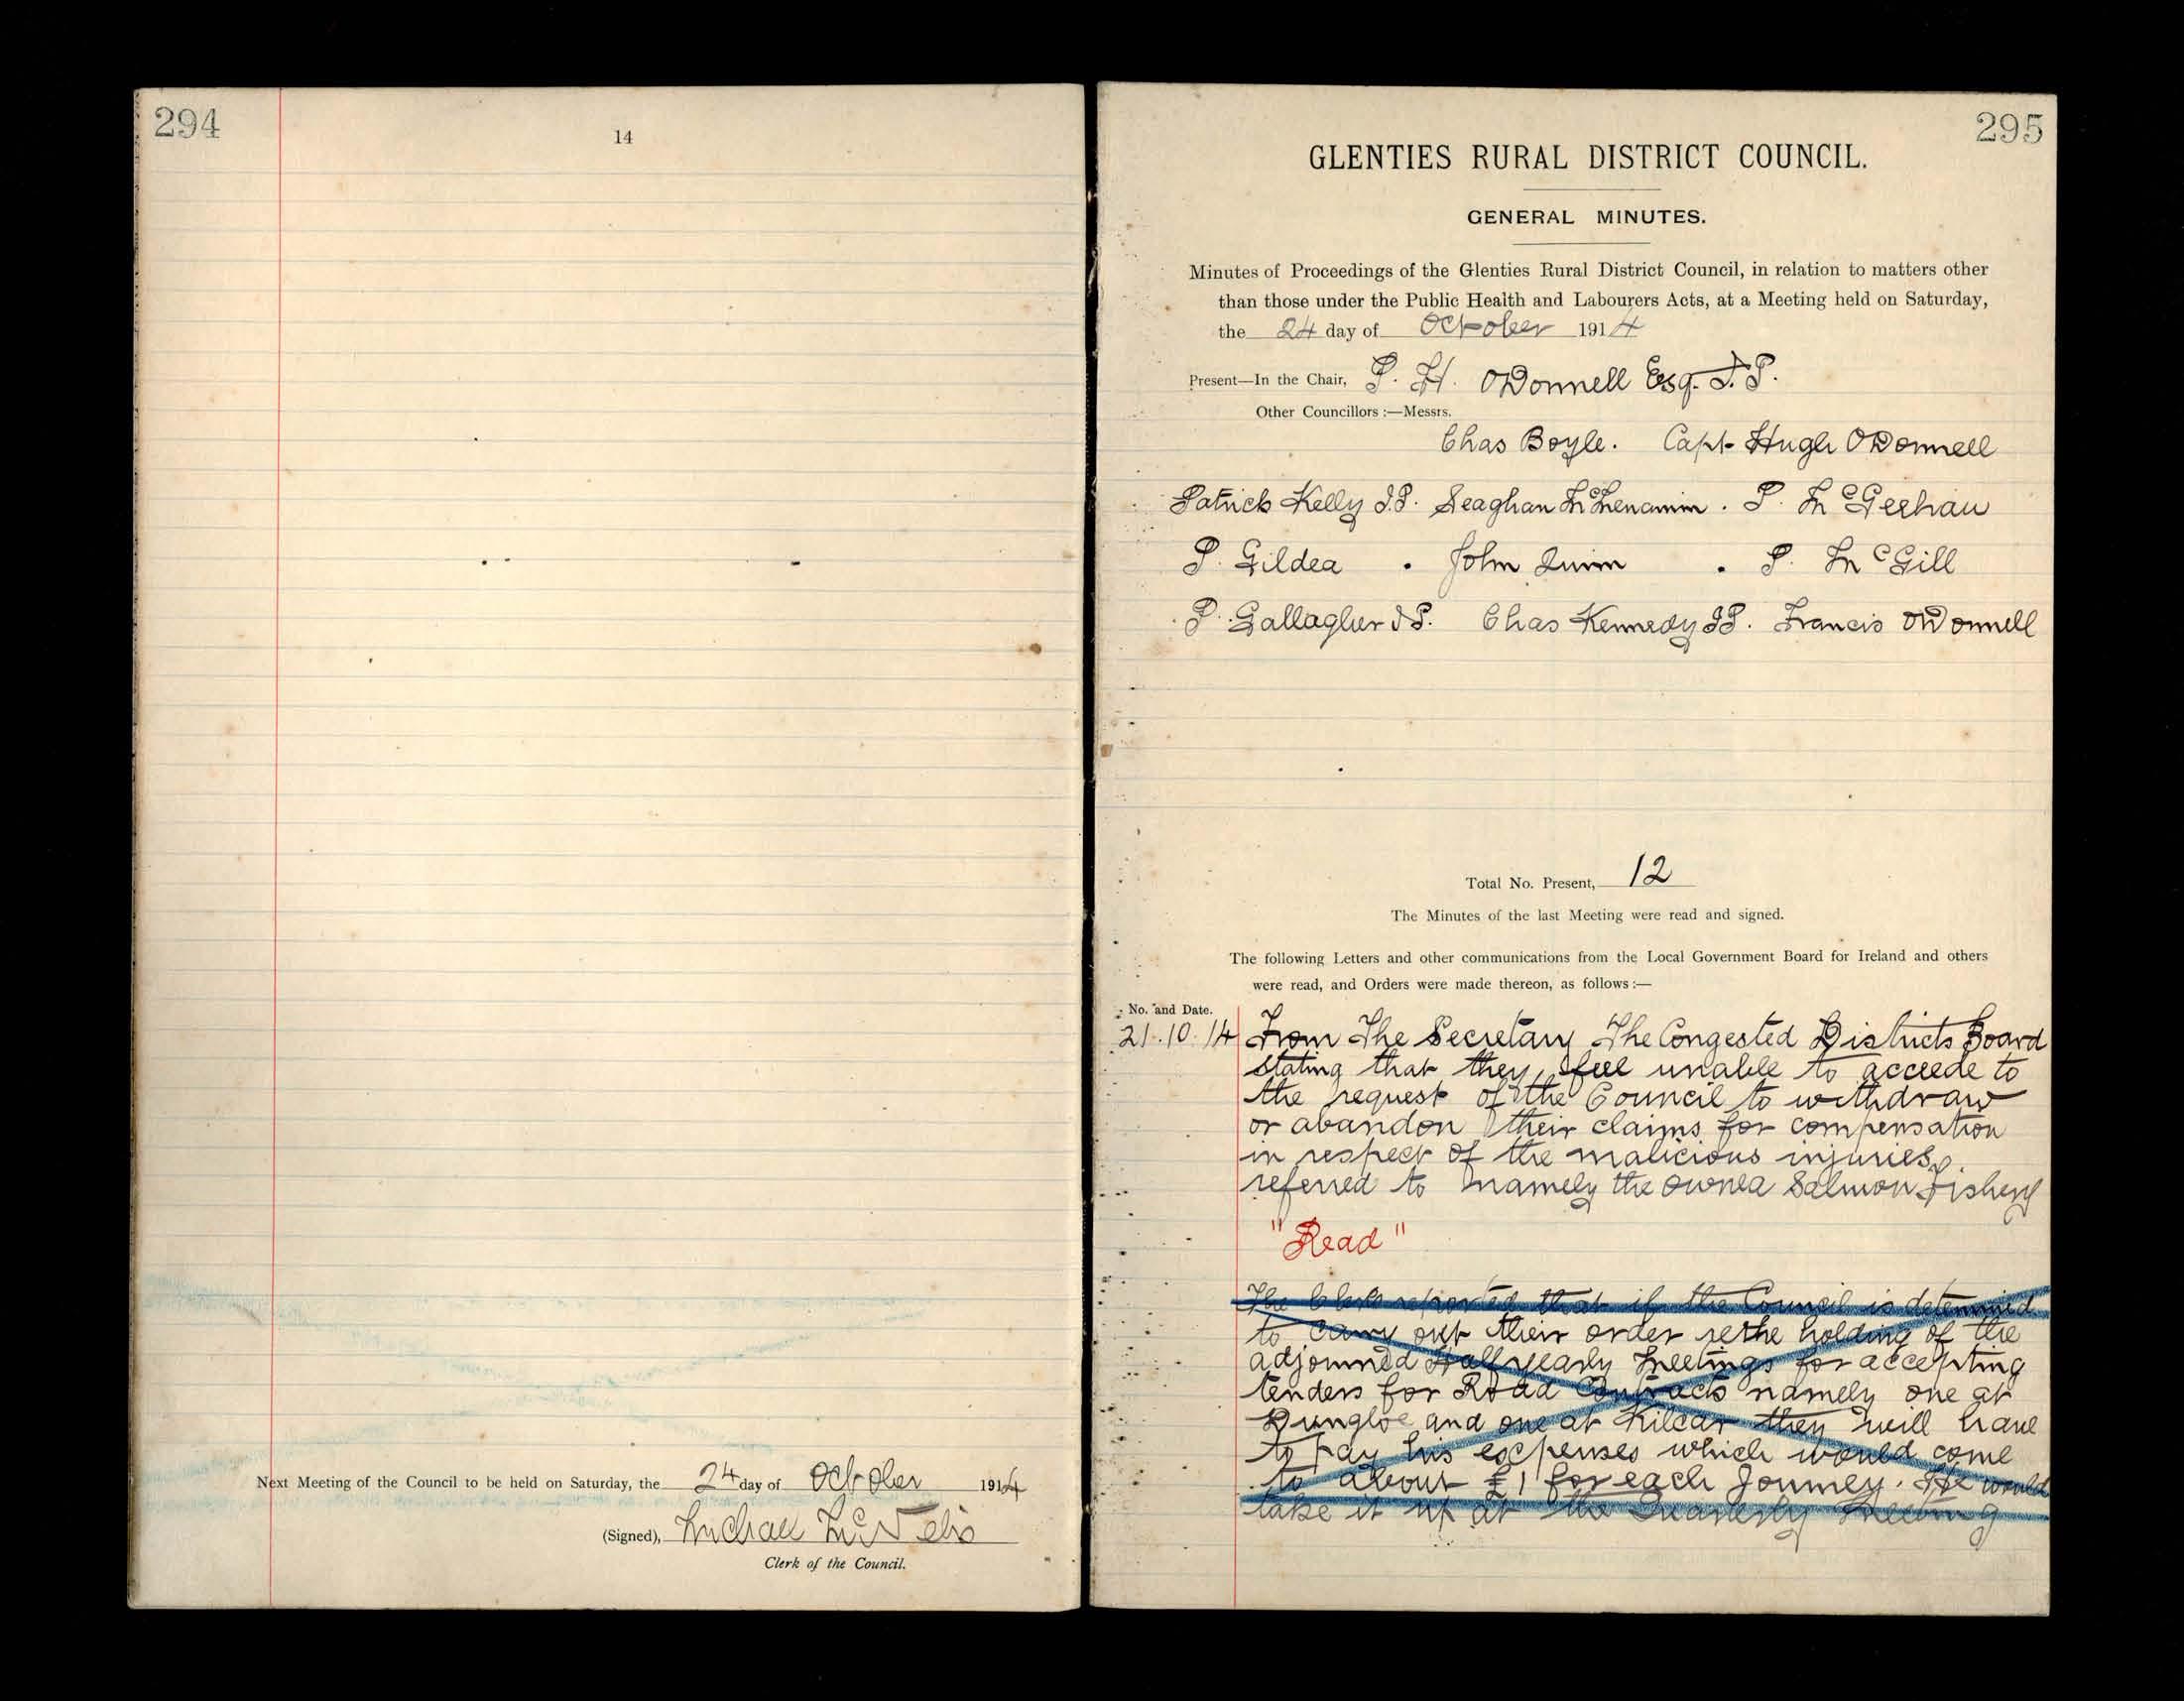 294
14
Next Meeting of the Council to be held on Saturday, the 24 day of October 1914
(Signed), Michael McNelis
Clerk of the Council.
295
GLENTIES RURAL DISTRICT COUNCIL.
GENERAL MINUTES.
Minutes of Proceedings of the Glenties Rural District Council, in relation to matters other
than those under the Public Health and Labourers Acts, at a Meeting held on Saturday,
the 24 day of October 1914
Present—In the Chair, P. H. ODonnell Esq. J.P.
Other Councillors :—Messrs.
Chas Boyle. Capt Hugh ODonnell
Patrick Kelly J.P. Seaghan McMenamin . P. McGeehan
P. Gildea . John Quinn . P. McGill
P. Gallagher J P. Chas Kennedy J P. Francis ODonnell
Total No. Present, 12
The Minutes of the last Meeting were read and signed.
The following Letters and other communications from the Local Government Board for Ireland and others
were read, and Orders were made thereon, as follows :—
No. and Date.
21.10.14 From The Secretary The Congested Districts Board
stating that they feel unable to acceede to
the request of the Council to withdraw
or abandon their claims for compensation
in respect of the malicious injuries
referred to namely the Ownea Salmon Fishery
"Read"
The Clerk reported that if the Council is determined
to carry out their order re the holding of the
adjourned Half yearly Meetings for accepting
tenders for Road Contracts namely one at
Dungloe and one at Kilcar they will have
to pay his expenses which would come
to about £1 for each Journey. He would
take it up at the Quarterly Meeting